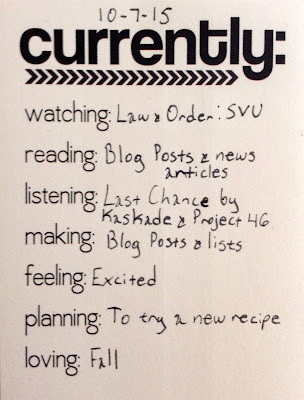 10-7-15
currently:
watching: Law & Order: SVU
reading: Blog Posts & news
articles
listening: Last Chance by
Kaskade & Project 46
making: Blog Posts & lists
feeling: Excited
planning: To try a new recipe
loving: Fall